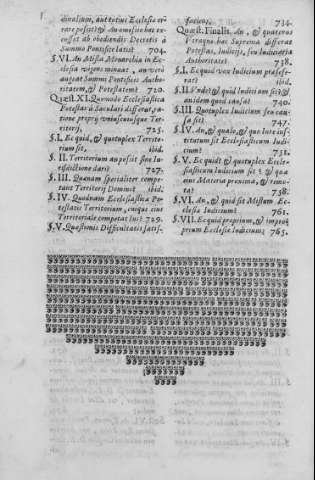 dinalium, aut totius Ecclesiæ er-
rare possit? & An omnis hæc ex-
cusset ab obediendis Decretis à
Summo Pontifice latis? 704.
§. VI. An Mista Monarchia in Ec-
clesia vigens minuat, an verò
augeat Summi Pontificis Autho-
ritatem, & Potestatem? 720.
Quæst. XI. Quomodo Ecclesiastica
Potestas à Sæculari differat, ra-
tione proprij vniuscuiusque Ter-
ritorij. 725.
§. I. Ecquid, & quotuplex Territo-
rium sit. ibid.
§. II. Territorium an possit sine Iu-
risdictione dari? 727.
§. III. Quanam specialiter compe-
tant Territorij Domino? ibid.
§. IV. Quænam Ecclesiastica Po-
testatis Territorium, cuique eius
Territoriale competat Ius? 729.
§. V. Quæstionis Difficultati satis-
factio. 734.
Quæst. Finalis. An, & quatenus
Vtraque hæc Suprema differat
Potestas, Iudicijs, seu Iudiciaria
Authoritate? 738.
§. I. Ecquid vox Iudicium præsefe-
rat? ibid.
§. II. Vnde? & quid Iudicium sit? &
an idem quod causa sit? 740.
§. III. Quotuplex Iudicium seu cau-
sa sit? 747.
§. IV. An, & quale, & quo Iure ins-
titutum sit Ecclesiasticum Iudi-
cium? 752.
§. V. Ecquid? & quotuplex Eccle-
siasticum Iudicium sit? & quæ
eius Materia proxima, & remo-
ta? 758.
§. VI. An, & quid sit Mistum Ec-
clesiæ Iudicium? 761.
§. VII. Ecquid proprium, & impro-
prium Ecclesiæ Iudicium? 765.